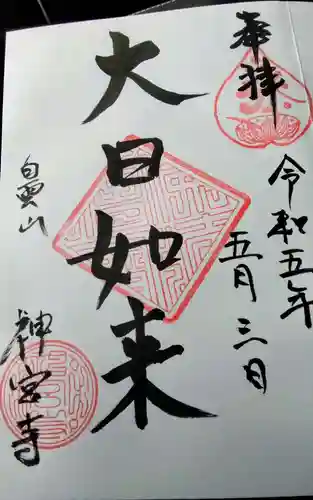 奉拝
令和五年
五月三日
大日如来
神宮寺